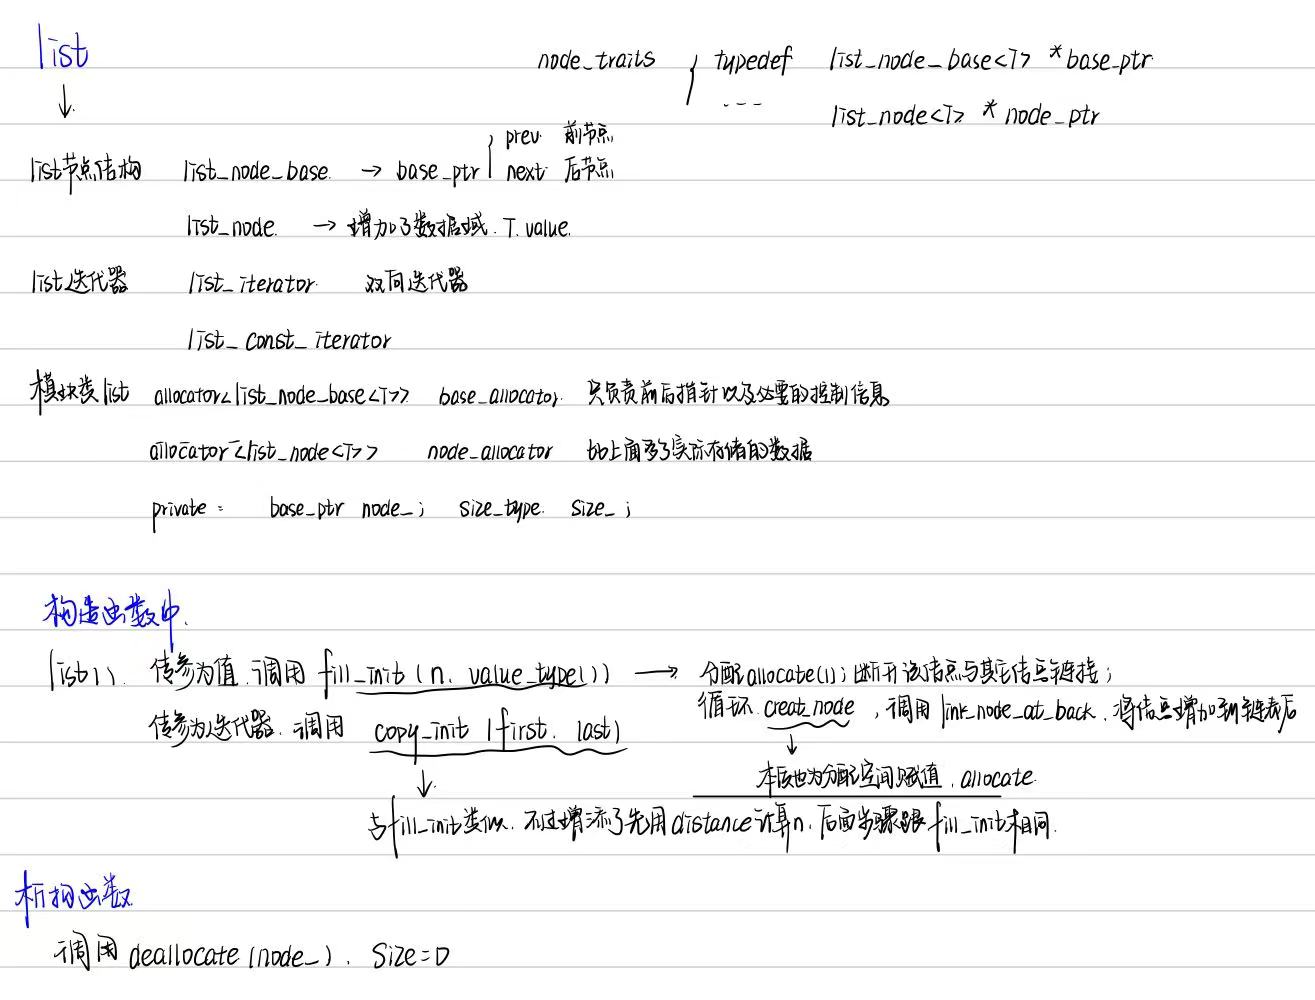 list
node_traits { typedef list_node_base<T> *base_ptr
---
list_node<T> * node_ptr
list节点结构 list_node_base. → base_ptr { prev. 前节点
next 后节点
list_node. → 增加了数据域. T.value.
list迭代器 list_iterator. 双向迭代器
list_const_iterator
模块类list allocator<list_node_base<T>> base_allocator. 只负责前后指针以及必要的控制信息
allocator<list_node<T>> node_allocator 比上面多了实际存储的数据
private: base_ptr node_; size_type. size_;
构造函数中.
list(). 传参为值.调用 fill_init(n. value_type()) → 分配allocate(1);断开该结点与其它结点链接;
循环.creat_node,调用link_node_at_back.将结点增加到链表后
传参为迭代器.调用 copy_init(first. last)
本质也为分配空间赋值.allocate.
与fill_init类似.不过增添了先用distance计算n.后面步骤跟fill_init相同.
析构函数
调用deallocate(node_). Size=0